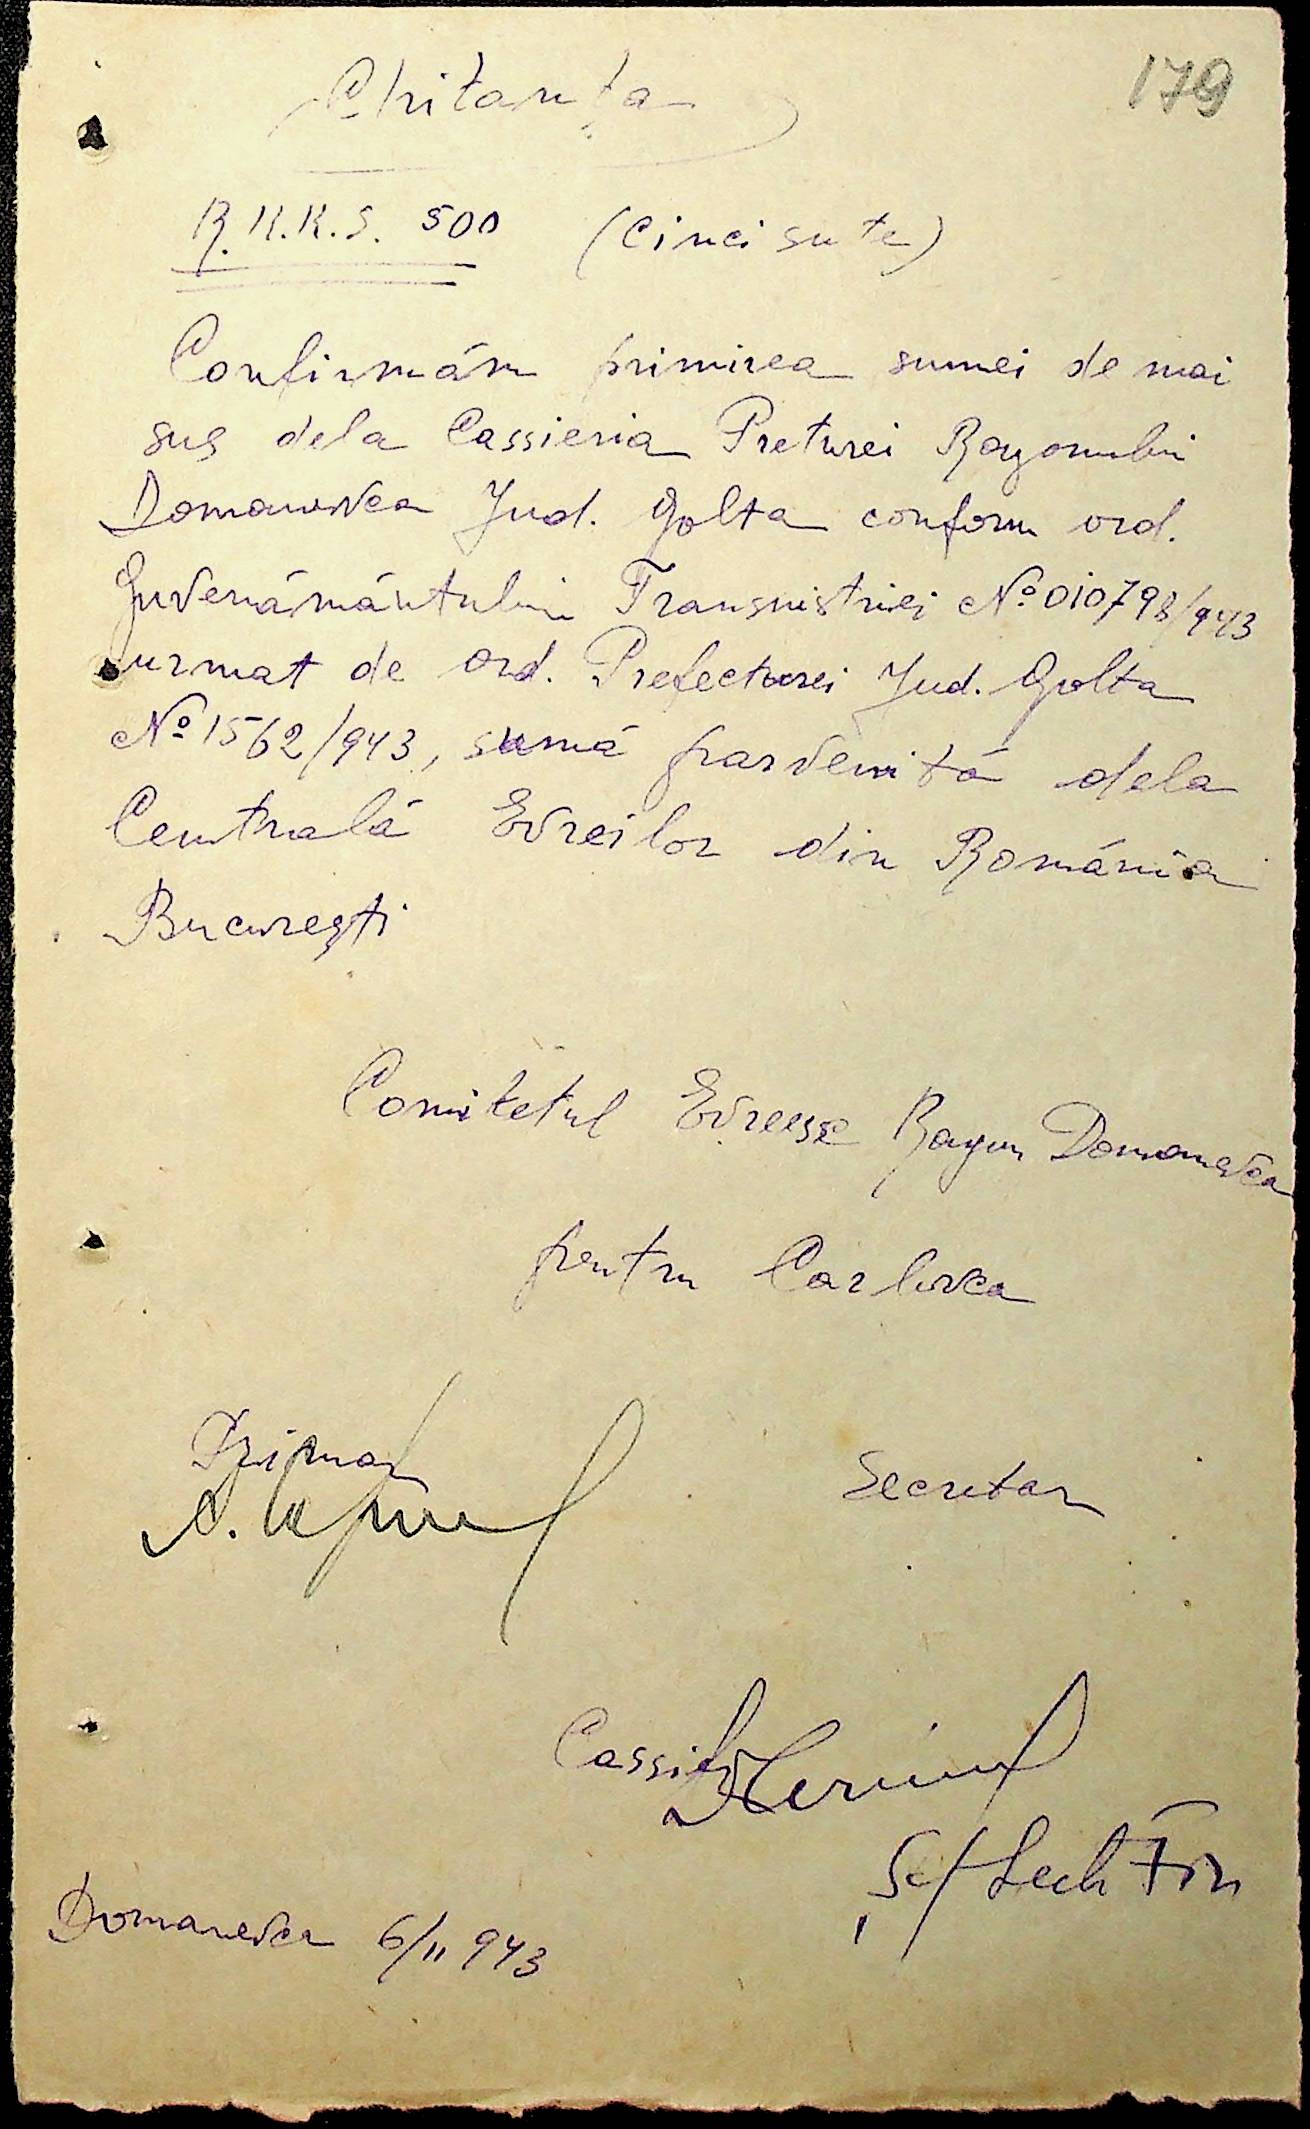 179
Chitanța
R.K.K.S. 500 (Cinci sute)
Confirmăm primirea sumei de mai
sus dela Cassieria Preturei Rayonului
Domanovca Jud. Golta conform ord.
Guvernământului Transnistriei № 010798/943
urmat de ord. Prefecturei Jud. Golta
№ 1562/943, sumă parvenită dela
Centrală Evreilor din România
București
Comitetul Evreesc Rayon Domanevca
pentru Carlovca
Primar
Secretar
Cassier
Domanevca 6/II 943